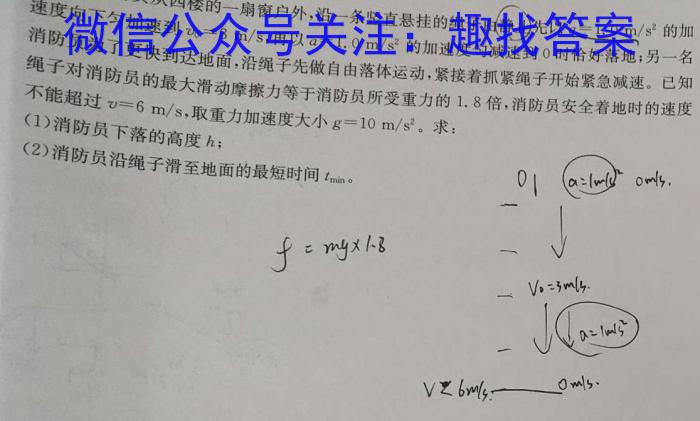 从四楼的一扇窗户外,沿一条竖直悬挂的
速度向下
微信公众号关注：趣找答案
消防员 快到达地面,沿绳子先做自由落体运动,紧接着抓紧绳子开始紧急减速。已知
绳子对消防员的最大滑动摩擦力等于消防员所受重力的1.8倍,消防员安全着地时的速度
不能超过v=6 m/s,取重力加速度大小g=10 m/s²。求:
(1)消防员下落的高度h;
(2)消防员沿绳子滑至地面的最短时间tmin。
a=1m/s² 0m/s.
f = mg×1.8
V₀=3m/s.
a=1m/s²
6m/s. 0m/s.